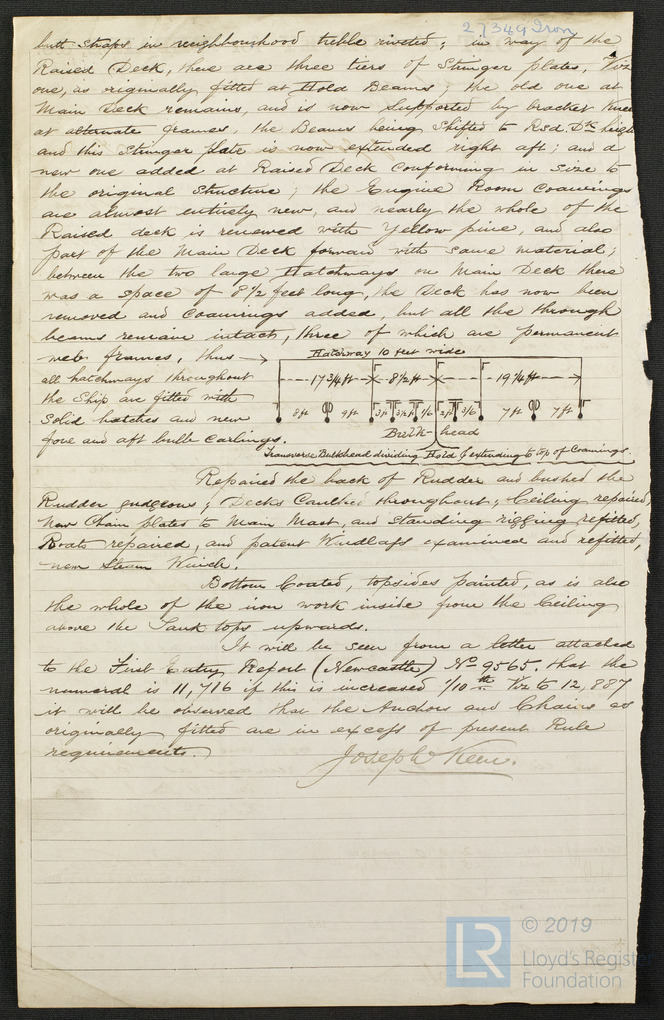 27349 Iron
butt straps in neighbourhood treble riveted; in way of the
Raised Deck, there are three tiers of Stringer plates, Viz
one, as originally fitted at Hold Beams; the old one at
Main Deck remains, and is now supported by bracket Knees
at alternate frames, the Beams being shifted to Rsd. Dk height
and this Stringer plate is now extended right aft; and a
new one added at Raised Deck conforming in size to
the original structure; the Engine Room Coamings
are almost entirely new, and nearly the whole of the
Raised deck is renewed with yellow pine, and also
part of the Main Deck forward with same material;
between the two large Hatchways on Main Deck there
was a space of 8 1/2 feet long, the Deck has now been
removed and Coamings added, but all the through
beams remain intact, three of which are permanent
web frames, thus →
all hatchways throughout
the ship are fitted with
solid hatches and new
fore and aft bulb carlings.
Hatchway 10 feet wide
17 3/4 ft 8 1/2 ft 19 1/4 ft
8 ft 9 ft 3 ft 3 1/2 ft 1/6 2 ft 3/6 7 ft 7 ft
Bulk-head
Transverse Bulkhead dividing Hold & extending to top of Coamings.
Repaired the back of Rudder and bushed the
Rudder gudgeons; Decks Caulked throughout; Ceiling repaired,
New Chain plates to Main Mast, and standing rigging refitted,
Boats repaired, and patent Windlass examined and refitted,
new Steam Winch.
Bottom Coated, topsides painted, as is also
the whole of the iron work inside from the Ceiling
above the Tank tops upwards.
It will be seen from a letter attached
to the First Entry Report (Newcastle) No 9565. that the
numeral is 11,716 if this is increased 1/10th Viz to 12,887
it will be observed that the Anchors and Chains as
originally fitted are in excess of present Rule
requirements.
Joseph Keen.
LR
© 2019
Lloyd's Register
Foundation